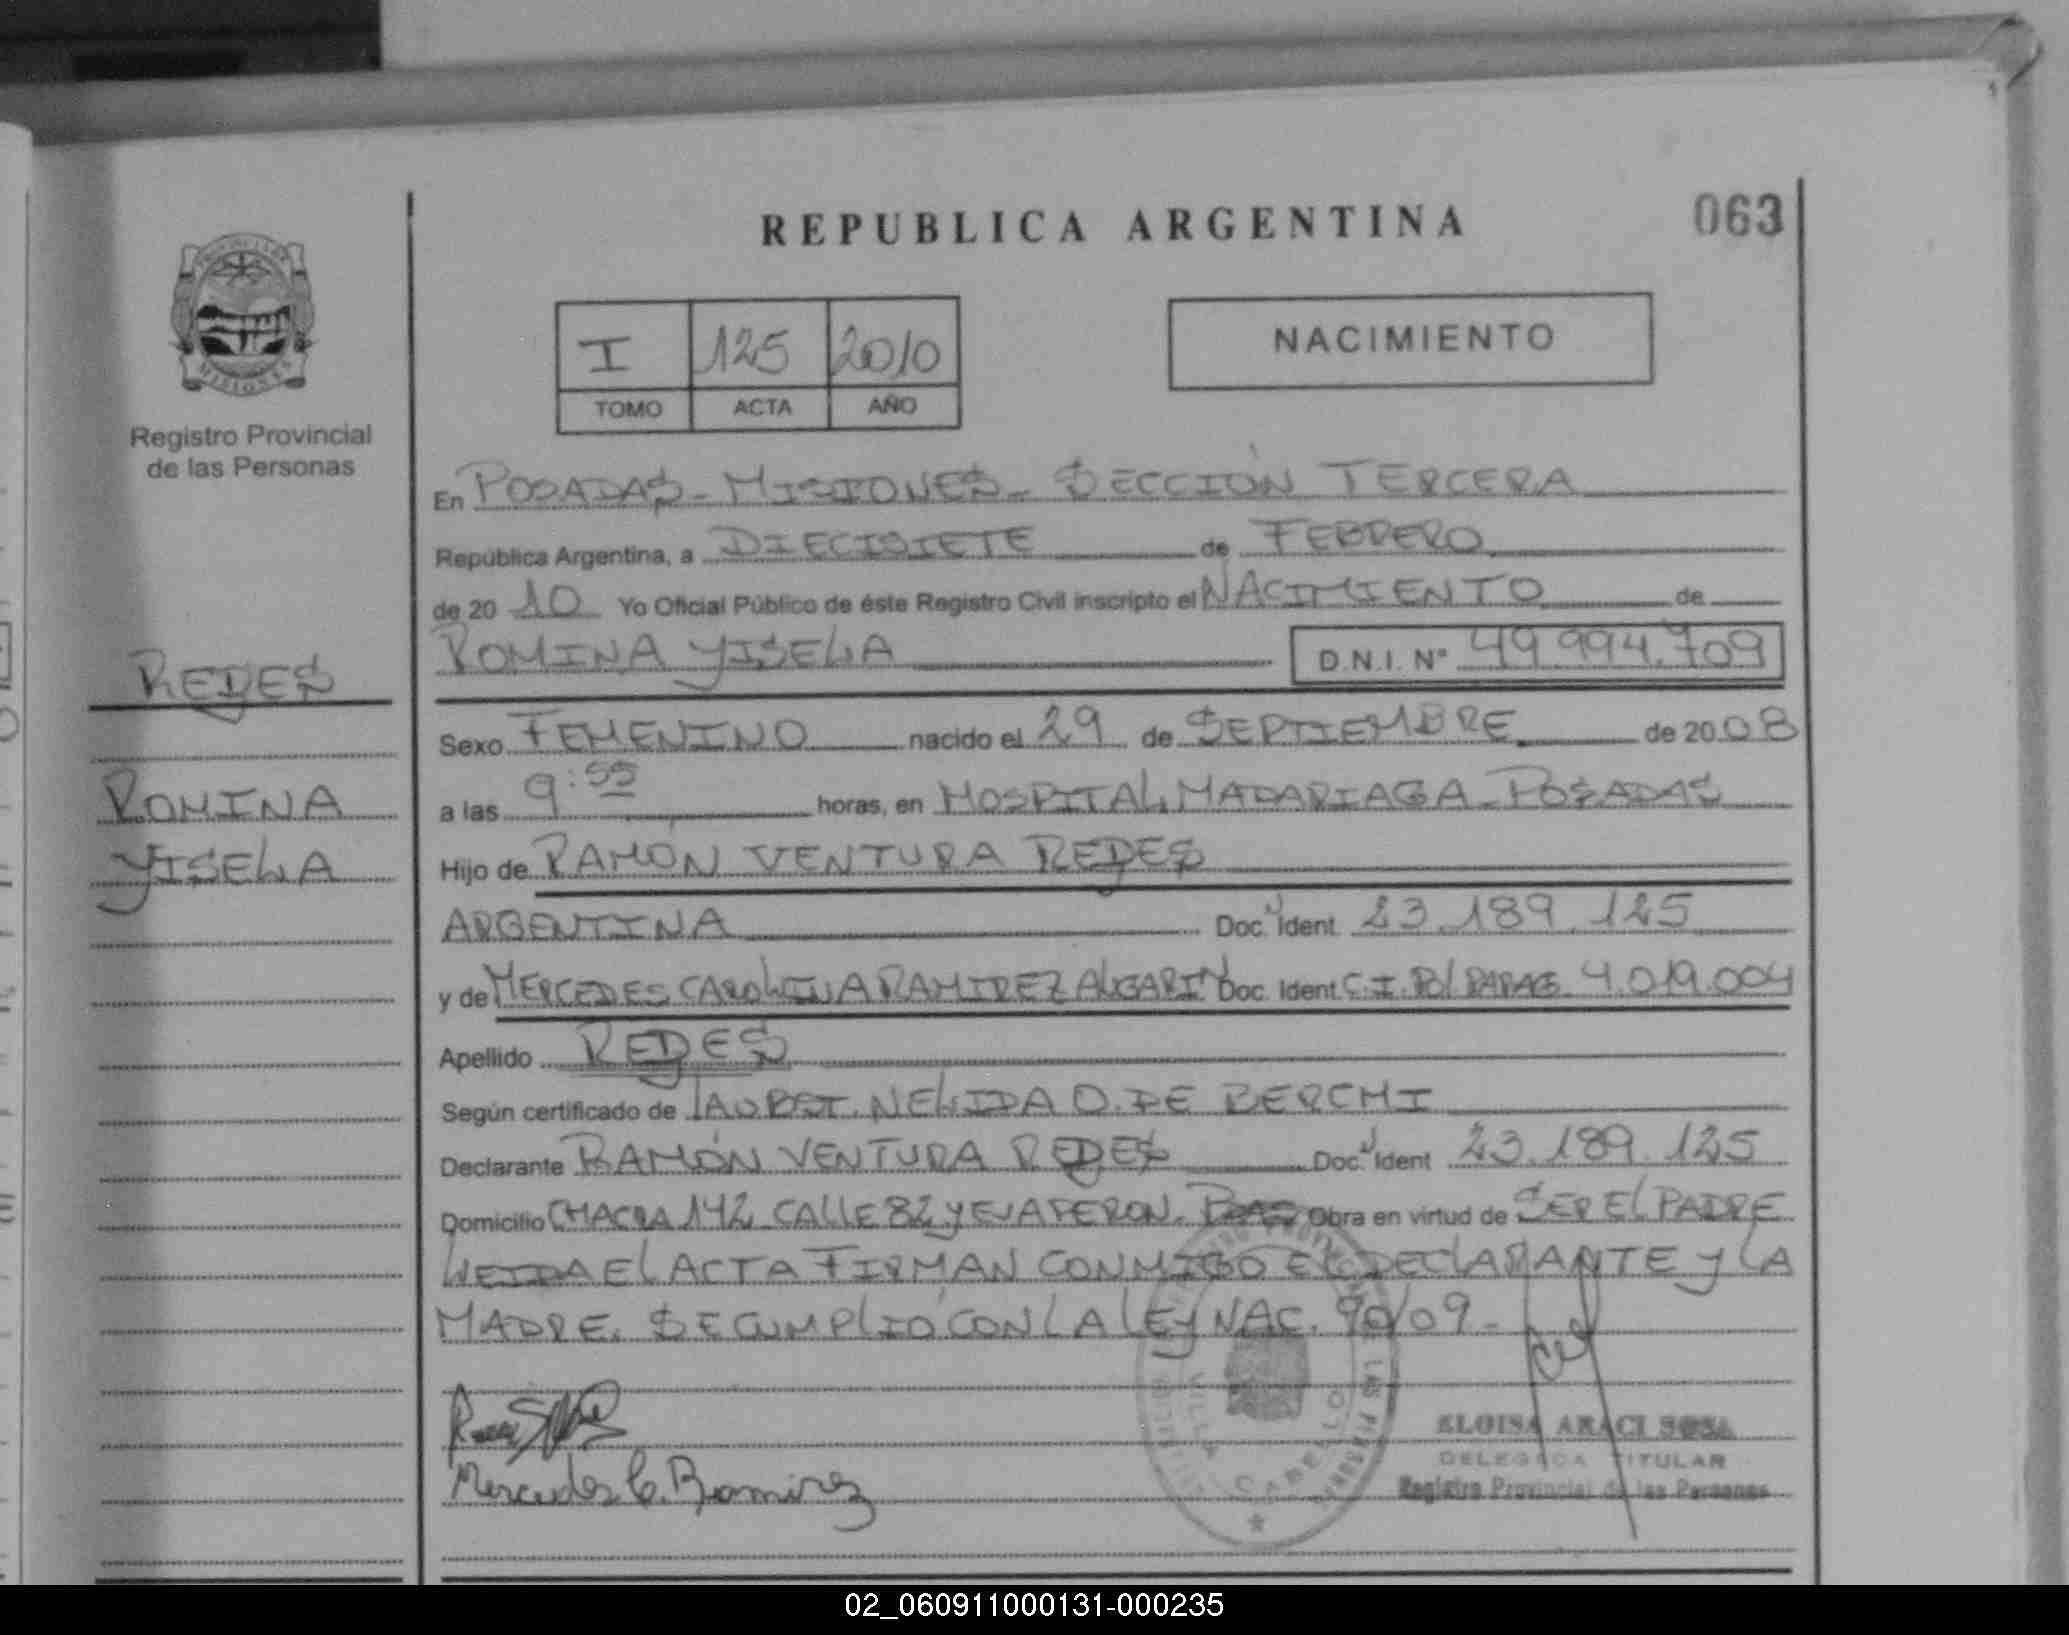 REPUBLICA ARGENTINA
063
PROVINCIA DE
MISIONES
Registro Provincial
de las Personas
I 125 2010
TOMO ACTA AÑO
NACIMIENTO
En POSADAS - MISIONES - SECCIÓN TERCERA
República Argentina, a DIECISIETE de FEBRERO
de 20 10 Yo Oficial Público de éste Registro Civil inscripto el NACIMIENTO de
ROMINA YISELA D.N.I. Nº 49.994.709
REDES
ROMINA
YISELA
Sexo FEMENINO nacido el 29 de SEPTIEMBRE de 20 08
a las 9:55 horas, en HOSPITAL MADARIAGA - POSADAS
Hijo de RAMÓN VENTURA REDES
ARGENTINA Doc. Ident 23.189.125
y de MERCEDES CAROLINA RAMIREZ ALGARIN Doc. Ident C.I. POL PARAG. 4.019.004
Apellido REDES
Según certificado de OBST. NELIDA O. DE BERCHI
Declarante RAMÓN VENTURA REDES Doc. Ident 23.189.125
Domicilio CHACRA 142 CALLE 82 Y EVA PERON. Obra en virtud de SER EL PADRE
LEIDA EL ACTA FIRMAN CONMIGO EL DECLARANTE Y LA
MADRE. SE CUMPLIÓ CON LA LEY NAC. 90/09 -
Mercedes C. Ramirez
VILLA CABELLO
ELOISA ARACI SOSA
DELEGADA TITULAR
Registro Provincial de las Personas
02_060911000131-000235